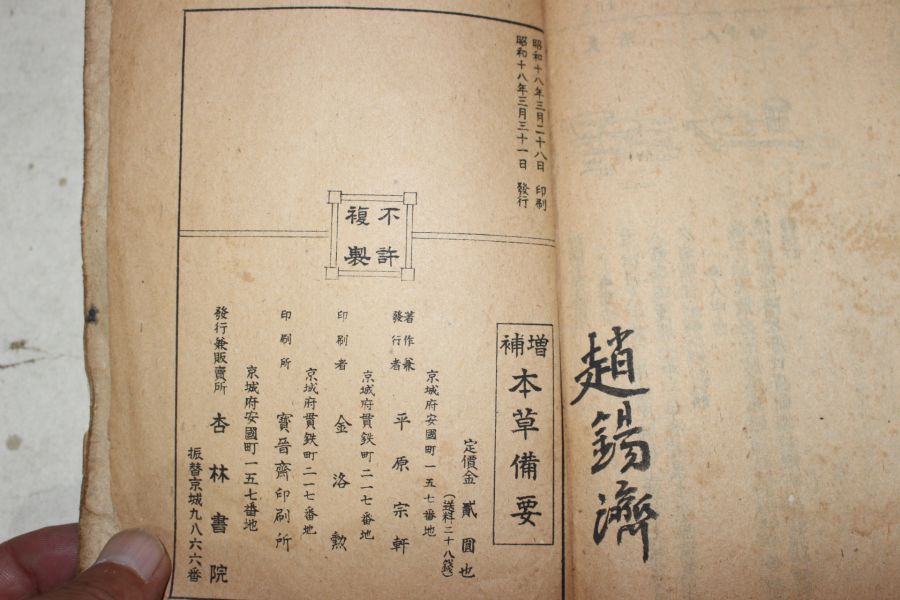 趙錫濟
昭和十八年三月二十八日 印刷
昭和十八年三月三十一日 發行
不許
複製
增補 本草備要
定價金貳圓也
(送料二十八錢)
京城府安國町一五七番地
著作兼
發行者 平原宗軒
京城府貫鉄町二一七番地
印刷者 金洛勲
京城府貫鉄町二一七番地
印刷所 寶晉齊印刷所
京城府安國町一五七番地
發行兼販賣所 杏林書院
振替京城九八六六番